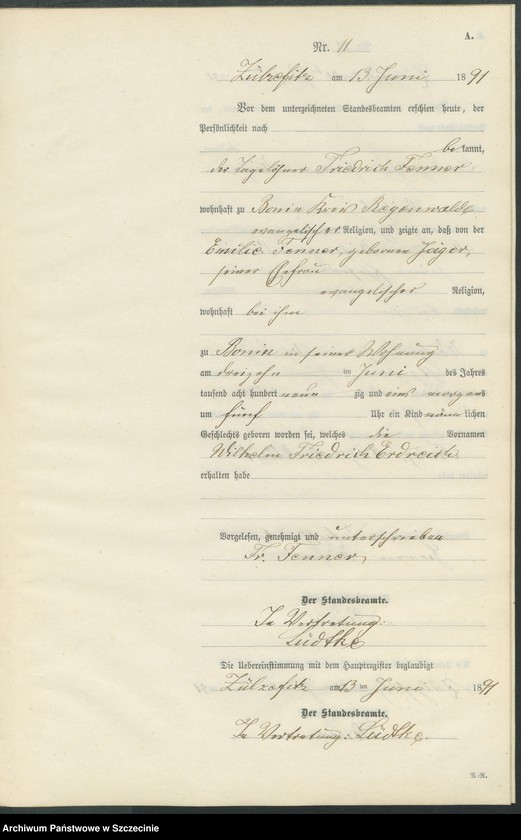 A.
Nr. 11
Zülzefitz am 13 Juni 1891
Vor dem unterzeichneten Standesbeamten erschien heute, der
Persönlichkeit nach
bekannt,
der Tagelöhner Friedrich Fenner
wohnhaft zu Bonin Kreis Regenwalde
evangelischer Religion, und zeigte an, daß von der
Emilie Fenner, geborenen Jäger,
seiner Ehefrau
evangelischer Religion,
wohnhaft bei ihm
zu Bonin in seiner Wohnung
am dreizehn ten Juni des Jahres
tausend acht hundert neunzig und eins morgens
um fünf Uhr ein Kind männlichen
Geschlechts geboren worden sei, welches die Vornamen
Wilhelm Friedrich
erhalten habe
Vorgelesen, genehmigt und unterschrieben
Fr. Fenner
Der Standesbeamte.
In Vertretung:
Lüdtke
Die Uebereinstimmung mit dem Hauptregister beglaubigt
Zülzefitz am 13 ten Juni 1891
Der Standesbeamte.
In Vertretung: Lüdtke.
Archiwum Państwowe w Szczecinie